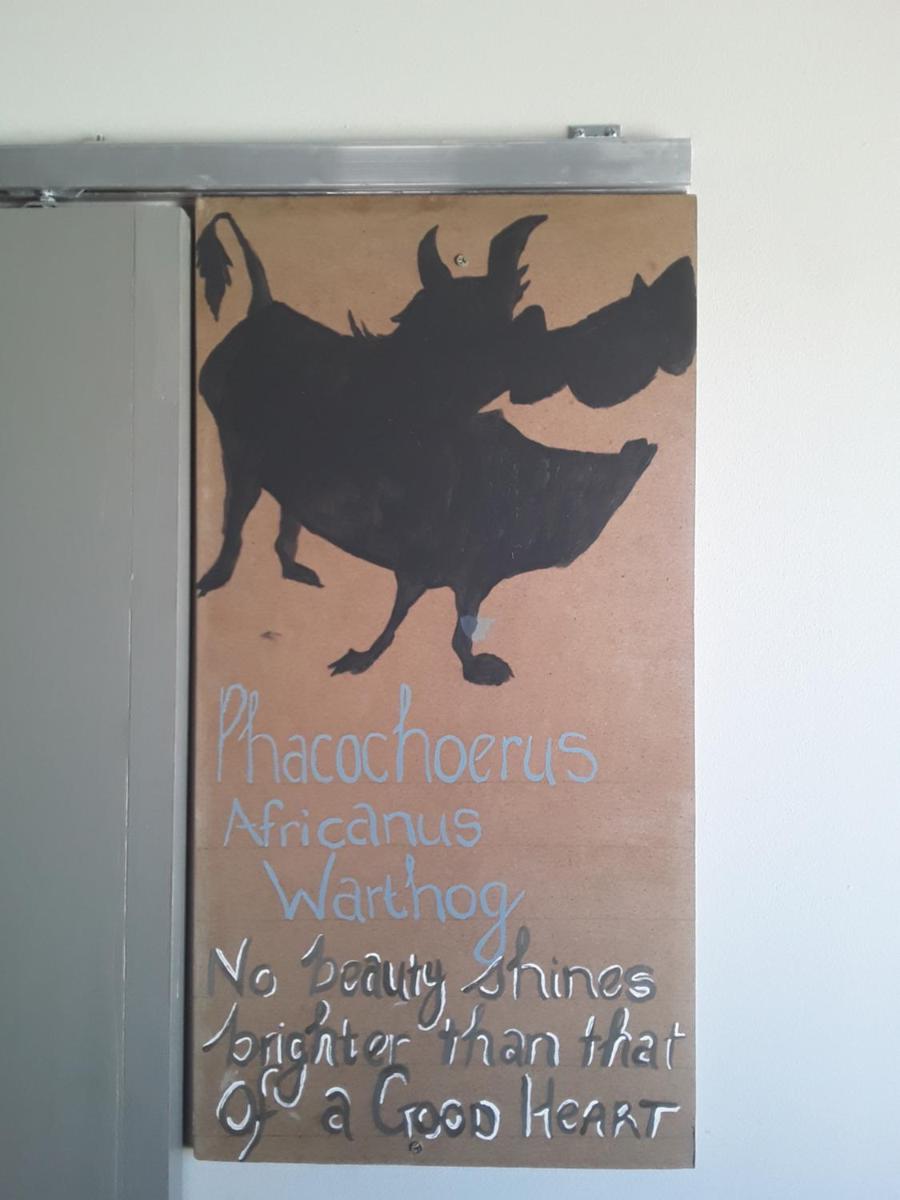 Phacochoerus
Africanus
Warthog
No beauty shines
brighter than that
Of a GOOD HEART